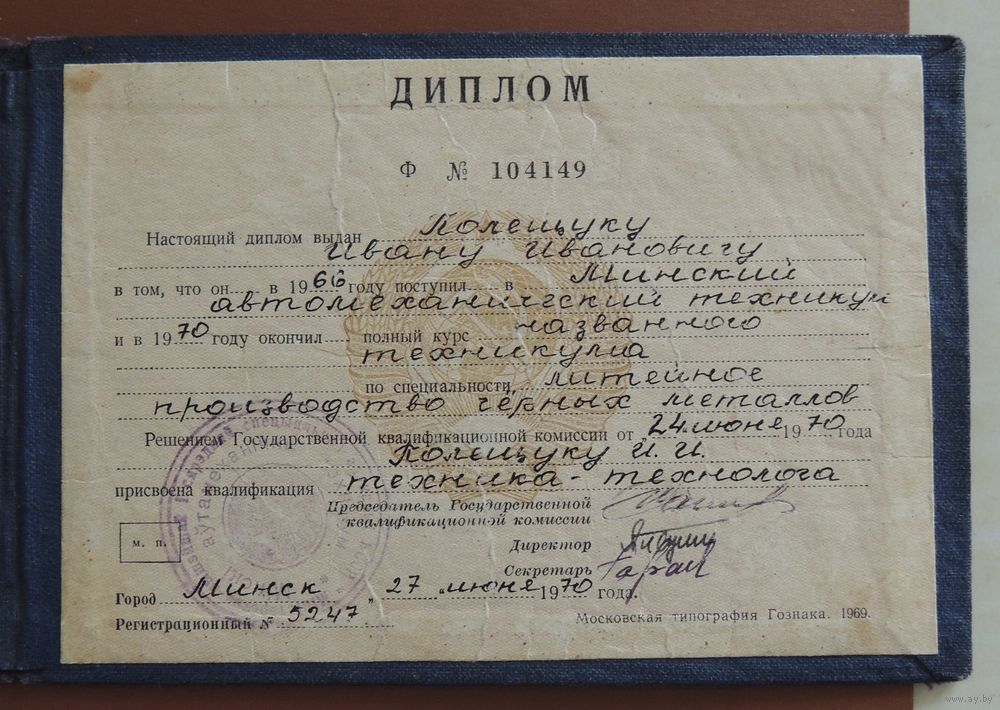 ДИПЛОМ
Ф № 104149
Настоящий диплом выдан Полещуку
Ивану Ивановичу
в том, что он в 1966 году поступил в Минский
автомеханический техникум
и в 1970 году окончил полный курс названного
техникума
по специальности, литейное
производство чёрных металлов
Решением Государственной квалификационной комиссии от 24 июня 1970 года
Полещуку И. И.
присвоена квалификация техника-технолога
Председатель Государственной
квалификационной комиссии
Директор
м. п.
Секретарь
Город Минск „27" июня 1970 года.
Регистрационный № 5247
Московская типография Гознака. 1969.
www.ay.by